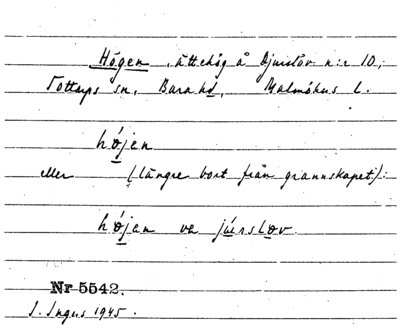 Högen, ättehög å Djurslöv n:r 10,
Tottarps sn, Bara hd, Malmöhus l.
højen
eller (längre bort från grannskapet):
højen ve júrslov
Nr 5542.
I. Ingers 1945.